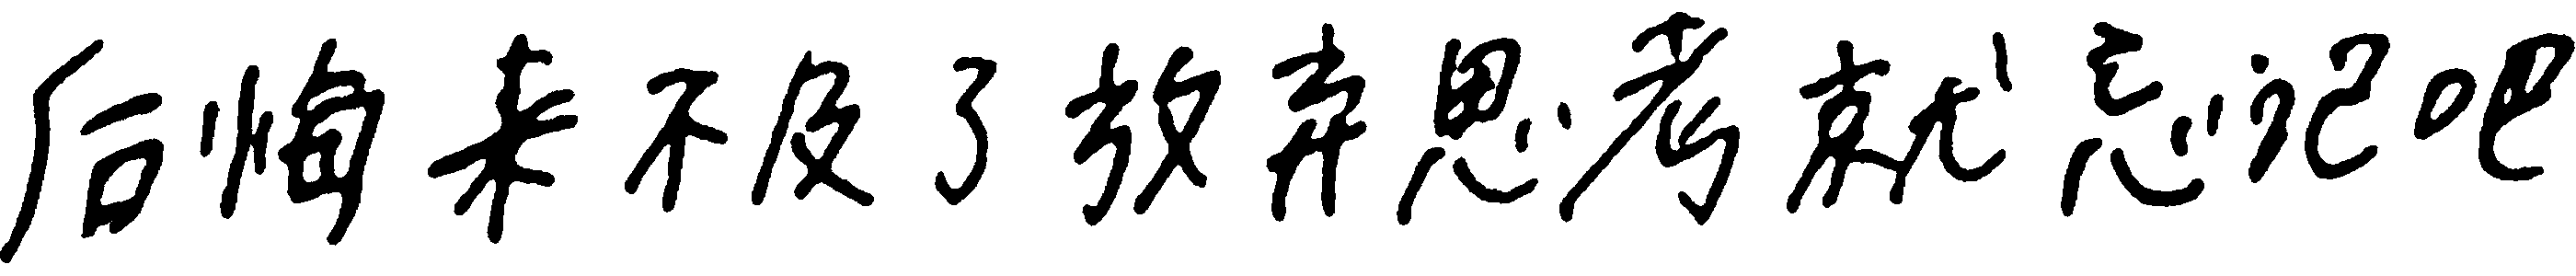 后悔来不及了放弃思考就忘记吧